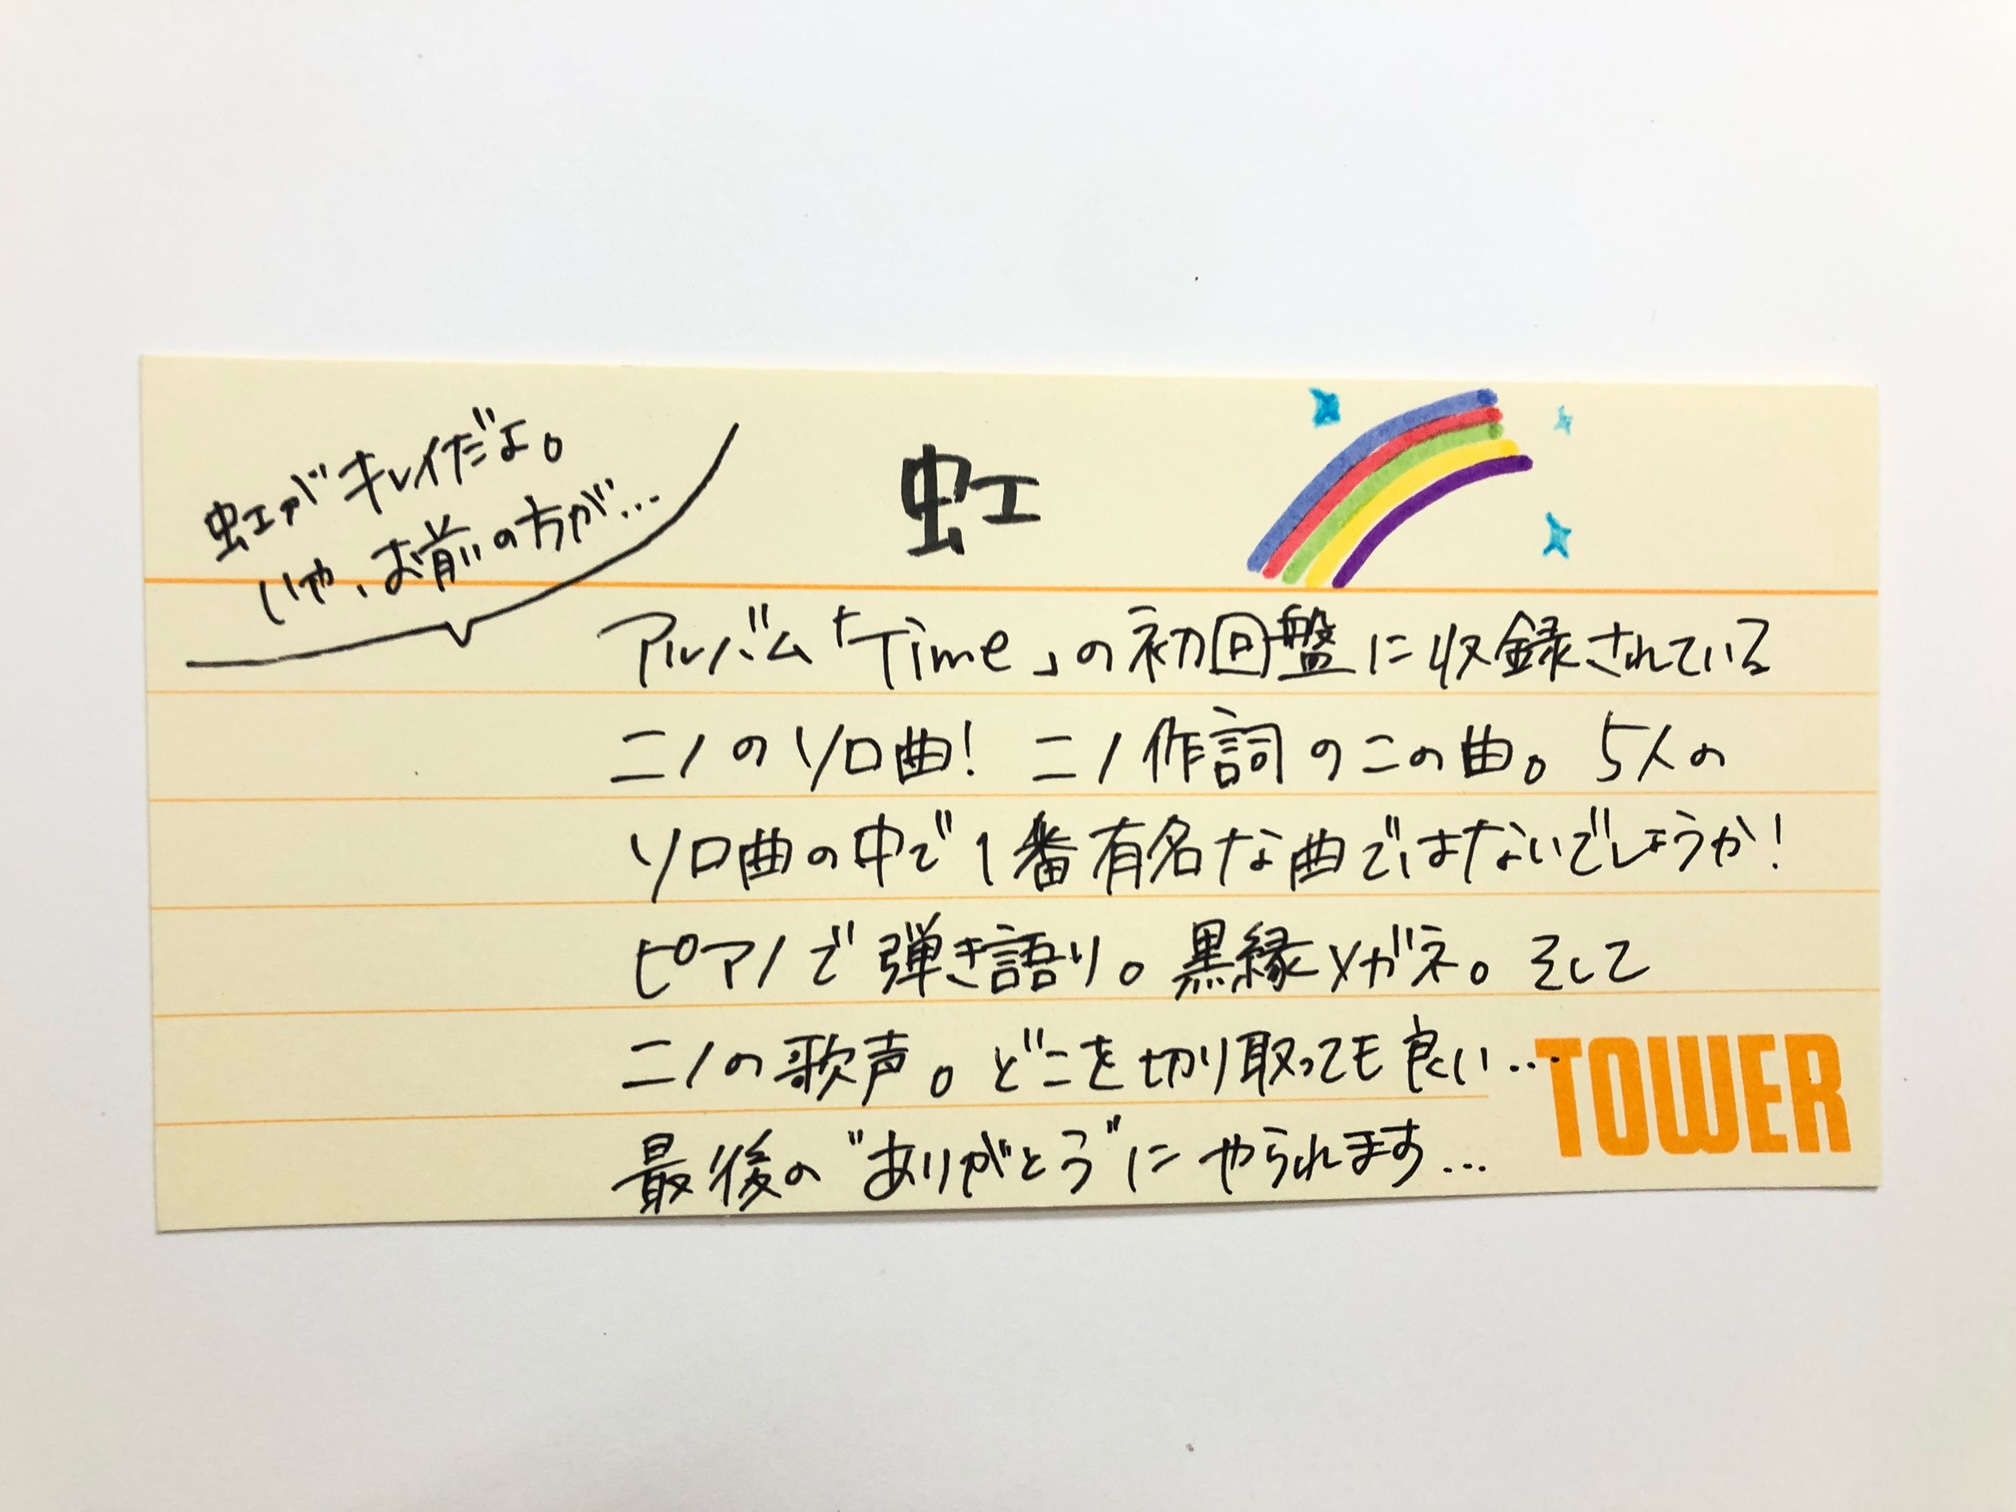 虹がキレイだよ。
いや、お前の方が…
虹
アルバム「Time」の初回盤に収録されている
ニノのソロ曲! ニノ作詞のこの曲。5人の
ソロ曲の中で1番有名な曲ではないでしょうか!
ピアノで弾き語り。黒縁メガネ。そして
ニノの歌声。どこを切り取っても良い…
最後の"ありがとう"にやられます…
TOWER